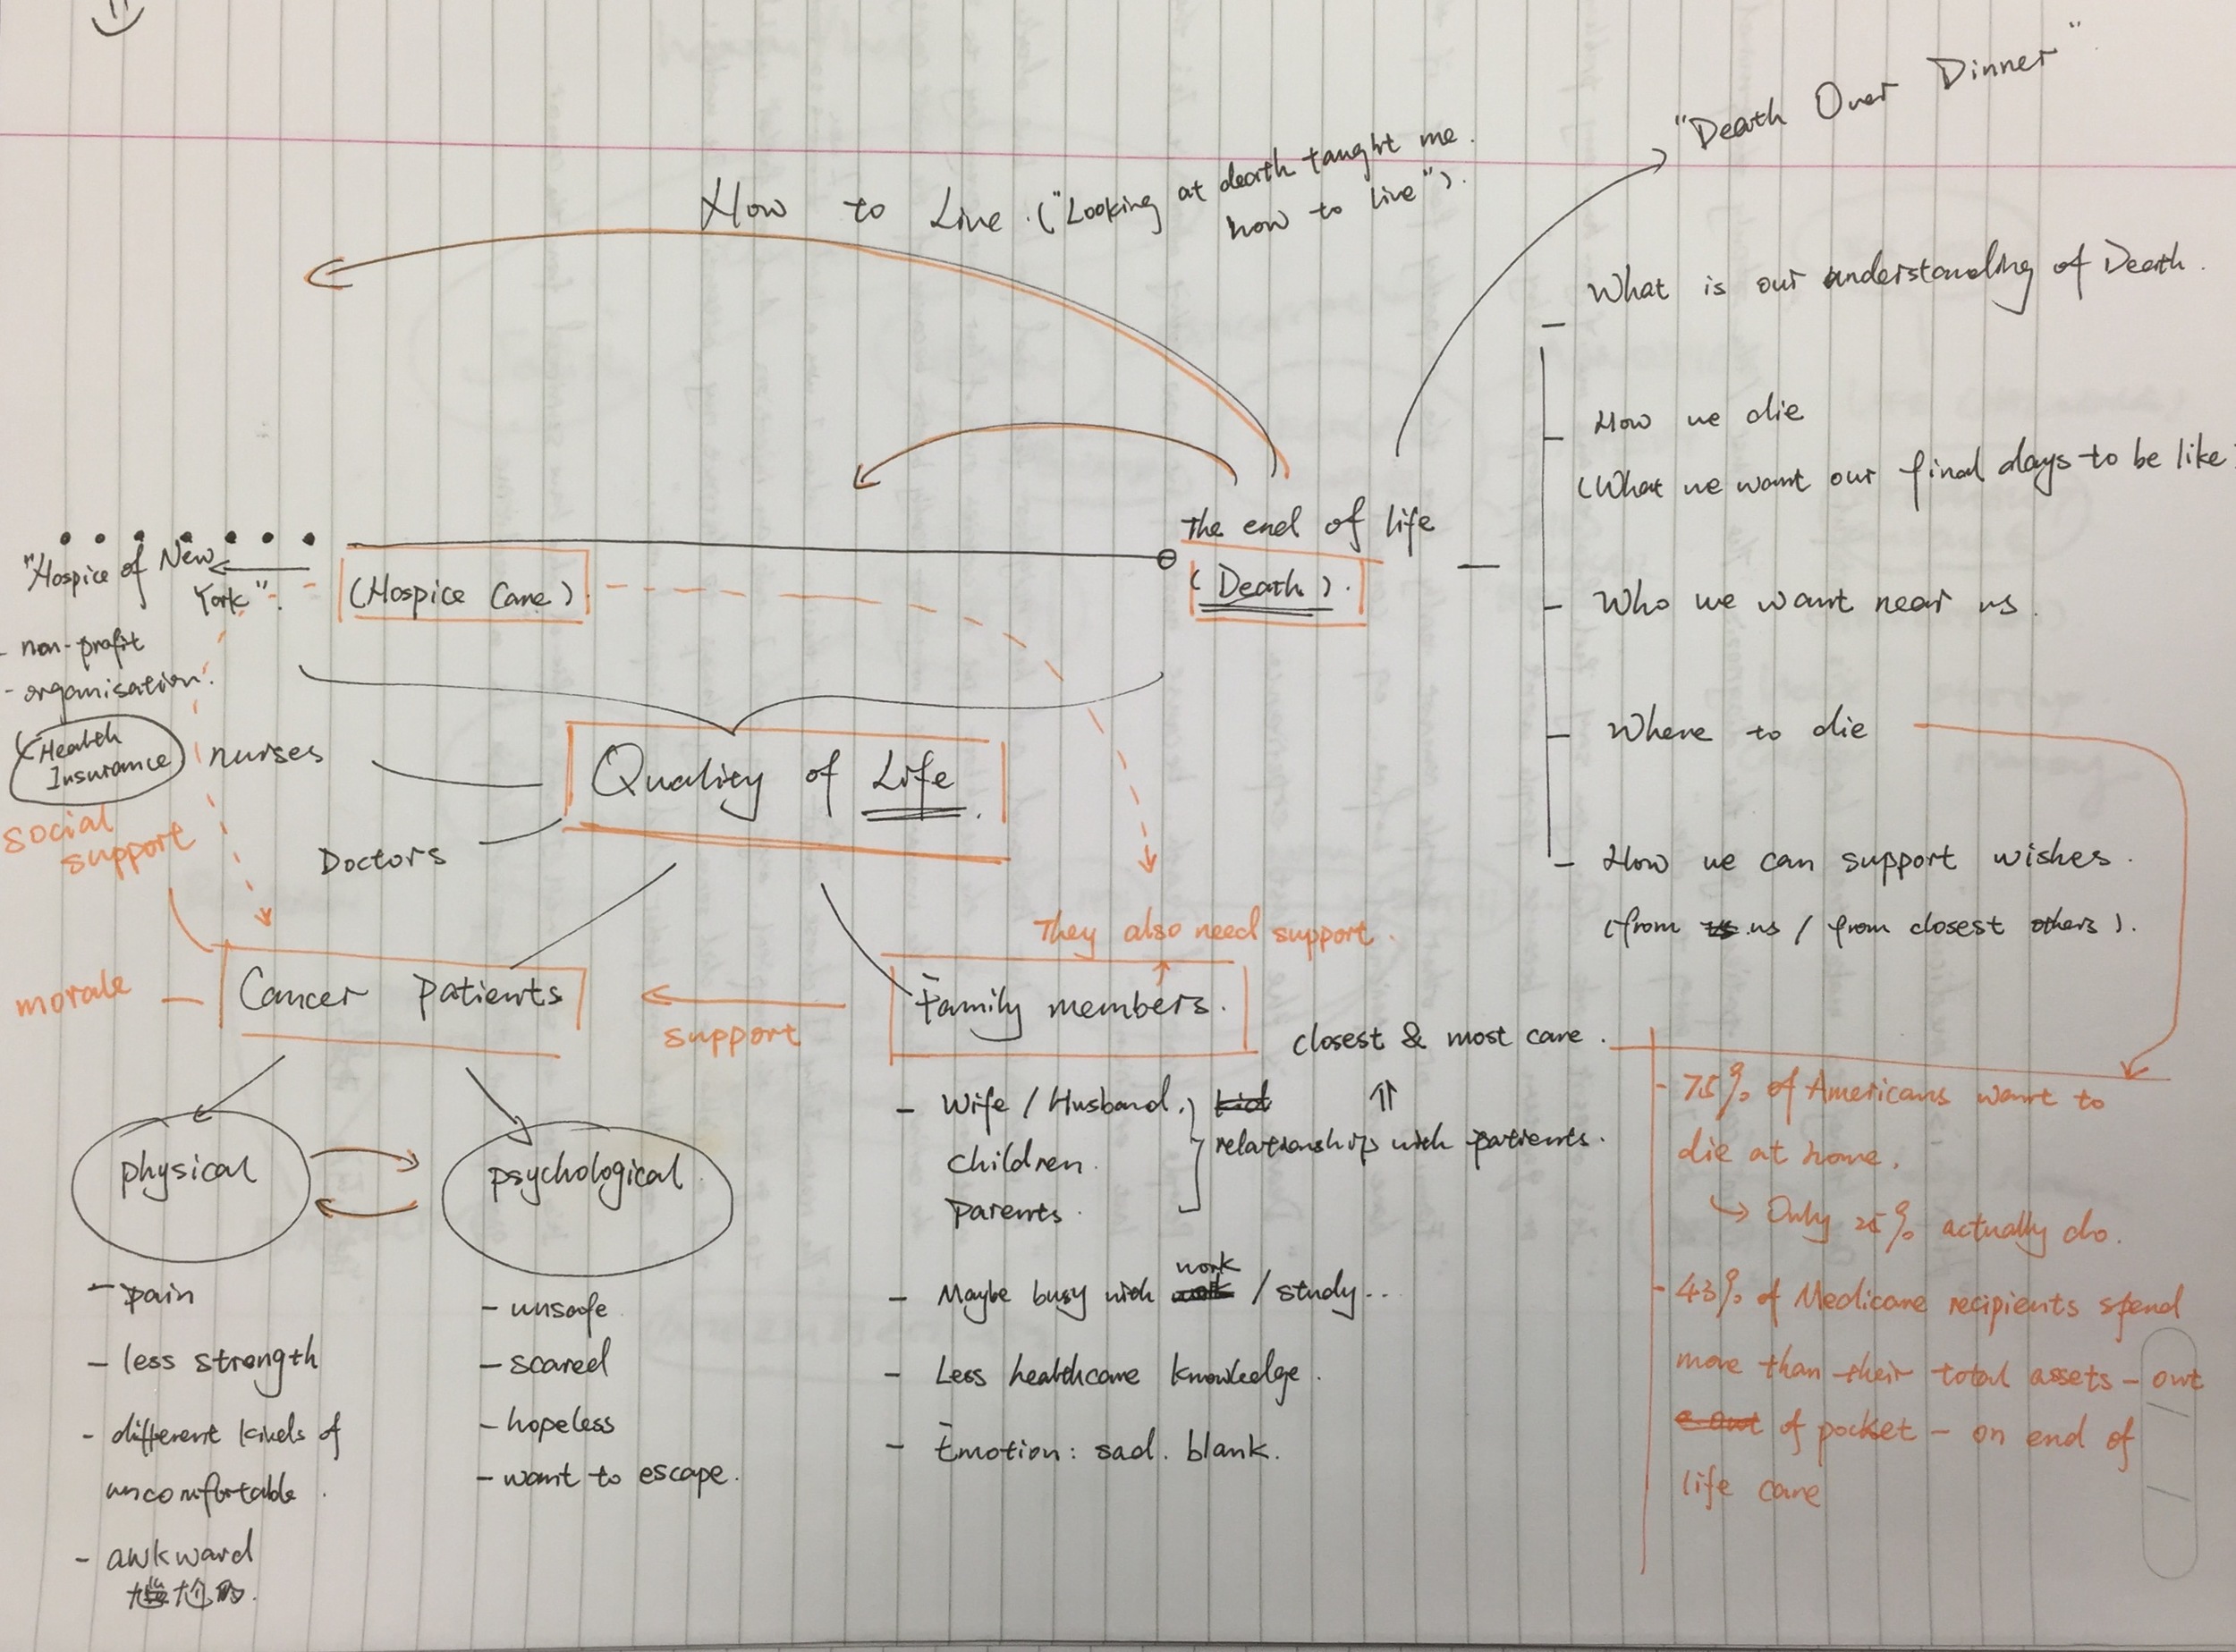 "Death Over Dinner"
How to Live. ("Looking at death taught me.
how to live").
What is our understanding of Death.
How we die
(What we want our final days to be like
Who we want near us.
Where to die
How we can support wishes.
(from us / from closest others).
The end of life
(Death).
(Hospice Care)
"Hospice of New
York".
- non-profit
- organisation.
(Health
Insurance)
nurses
Doctors
social
support
morale
Quality of Life.
Cancer Patients
support
They also need support.
Family members.
closest & most care.
⇑
relationship with patients.
- Wife / Husband.
children.
Parents.
- Maybe busy with work / study..
- Less healthcare knowledge.
- Emotion: sad. blank.
physical
- pain
- less strength
- different kinds of
uncomfortable.
- awkward
尴尬的.
psychological
- unsafe
- scared
- hopeless
- want to escape.
- 75% of Americans want to
die at home.
↳ Only 25% actually do.
- 43% of Medicare recipients spend
more than their total assets - out
of pocket - on end of
life care